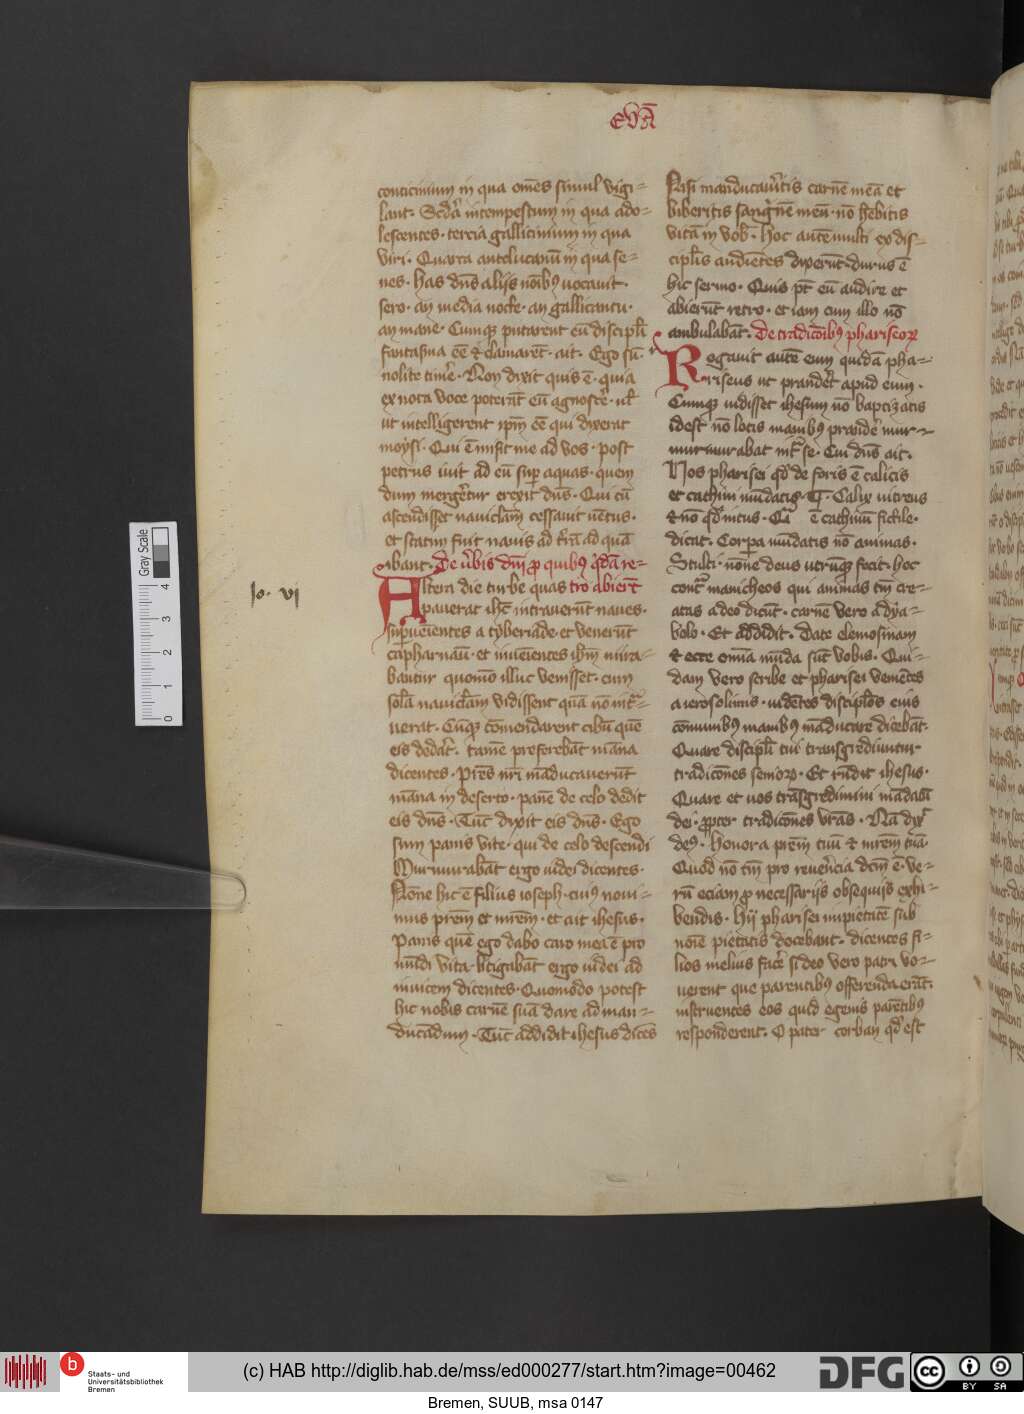 EVĀ
conticinium in qua om̄es simul vigi=
lant. Scd̄a intempestum in qua ado=
lescentes. tercia gallicinium in qua
viri. Quarta antelucanū in qua se=
nes. has dn̄s alijs noībꝰ uocauit.
sero. an media nocte. an gallicantu.
an mane. Cumqꝫ putarent eū discipl̄i
fantasma eē & clamarēt. ait. Ego sū.
nolite timēre. Non dixit quis ē. quia
ex nota voce poterāt eū agnoscē. ul̄
ut intelligerent ip̄m eē qui dixerat
moysi. Qui ē misit me ad vos. post
petrus iuit ad eū suꝑ aquas. quem
dum mergēretur erexit dn̄s. Qui cū
ascendisset nauiclām cessauit uētus.
et statim fuit nauis ad tr̄ā ad quā
ibant. De v̄bis dn̄i ꝓ quibꝰ qͥdā re=
tro abierūt
Altera die turbe quas
pauerat ihc̄ intrauerūt naues.
suꝑueīentes a tyberiade. et venerūt
capharnaū. et inueīentes ihm̄ mira=
bantur quomō illuc venisset. cum
solā nauiclām vidissent quā nō int̄=
uerat. Cūqꝫ cōmendarent cibū quē
eis dedat̄. tamē preferebāt māna
dicentes. Pr̄es nr̄i māducauerūt
māna in deserto. panē de celo dedit
eis dn̄s. Tūc dixit eis dn̄s. Ego
sum panis vite. qui de celo descendi
Murmurabāt ergo iudei dicentes.
Nōne hic ē filius ioseph. cuiꝰ noui=
mus prēm et mrēm. et ait ihesus.
Panis quē ego dabo caro mea ē pro
mūdi vita. litigabāt ergo iudei ad
inuicem dicentes. Quomodo potest
hic nobis carnē suā dare ad man=
ducādum. Tūc addidit ihesus dicēs
Nisi manducauītis carnē meā et
biberitis sangͥnē meū. nō hēbitis
vitā in vob̄. hoc autē multi ex dis=
cipl̄is audiētes dixerūt. durus ē
hic sermo. Quis pt̄ eū audire et
abierūt retro. et iam cum illo nō
ambulabāt. De tradicōibꝰ phariseoꝝ
Rogauit autē eum quidā pha=
riseus ut prandēt apud eum.
Cumqꝫ uidisset ihesum nō baptizatis
idest nō lotis manibꝰ prandē mur=
murmurabat int̄ se. Cui dn̄s ait.
Vos pharisei qd̄ de foris ē calicis
et cathini mūdatis. Calix uitreus
& nō qd̄ intus. ē catinū fictile.
dicat. Corꝑa mūdatis nō animas.
Stulti. nōne deus utrūqꝫ fecit. hoc
conͭ manicheos qui animas tm̄ cre=
atas a deo dicūt. carnē vero a dya=
bolo. Et addidit. Date elemosinam
& ecce om̄ia mūda sūt vobis. Qui=
dam vero scribe et pharisei veniētes
a ierosolimis. uidētes discipl̄os eius
cōmunibꝰ manibꝰ māducare dicebāt.
Quare discipl̄i tui transgrediuntur
tradicōnes senioꝝ. Et rn̄dit ihesus.
Quare et uos trāsgredimini mādatū
dei. ꝓpter tradicōnes vr̄as. Nā dix̄
deꝰ. honora prēm tuū & mrēm tuā
Quod nō tm̄ pro reuēncia dcm̄ ē. ve=
rū eciam ꝓ necessarijs obsequijs exhi=
bendis. hij pharisei impietatē sub
noīe pietatis docebant. dicentes fi=
lios melius facē si deo vero patri vo=
uerent que parentibꝰ offerenda erāt.
instruentes eos quid egenis parētibꝰ
responderent. O pater corban qd̄ est
Io. vi
Gray Scale
0 1 2 3 4
b
Staats- und
Universitätsbibliothek
Bremen
(c) HAB http://diglib.hab.de/mss/ed000277/start.htm?image=00462
DFG
cc
BY SA
Bremen, SUUB, msa 0147